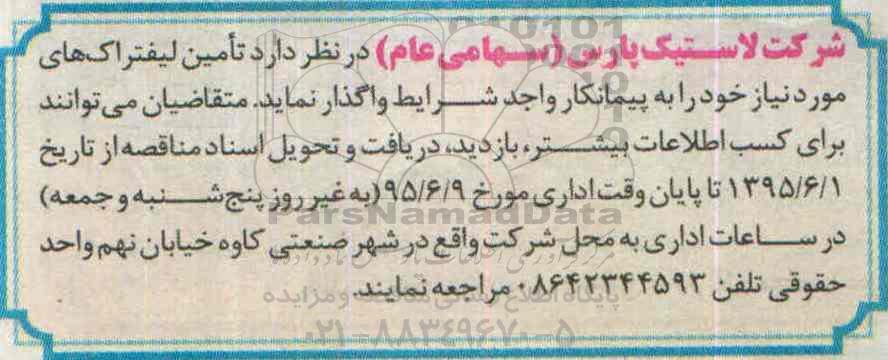 شرکت لاستیک پارس (سهامی عام) در نظر دارد تأمین لیفتراک‌های
مورد نیاز خود را به پیمانکار واجد شرایط واگذار نماید. متقاضیان می‌توانند
برای کسب اطلاعات بیشتر، بازدید، دریافت و تحویل اسناد مناقصه از تاریخ
۱۳۹۵/۶/۱ تا پایان وقت اداری مورخ ۹۵/۶/۹ (به غیر روز پنج‌شنبه و جمعه)
ParsNamadData
در ساعات اداری به محل شرکت واقع در شهر صنعتی کاوه خیابان نهم واحد
حقوقی تلفن ۰۸۶۴۲۳۴۴۵۹۳ مراجعه نمایند.
۰۲۱-۸۸۳۴۹۶۷۰-۵